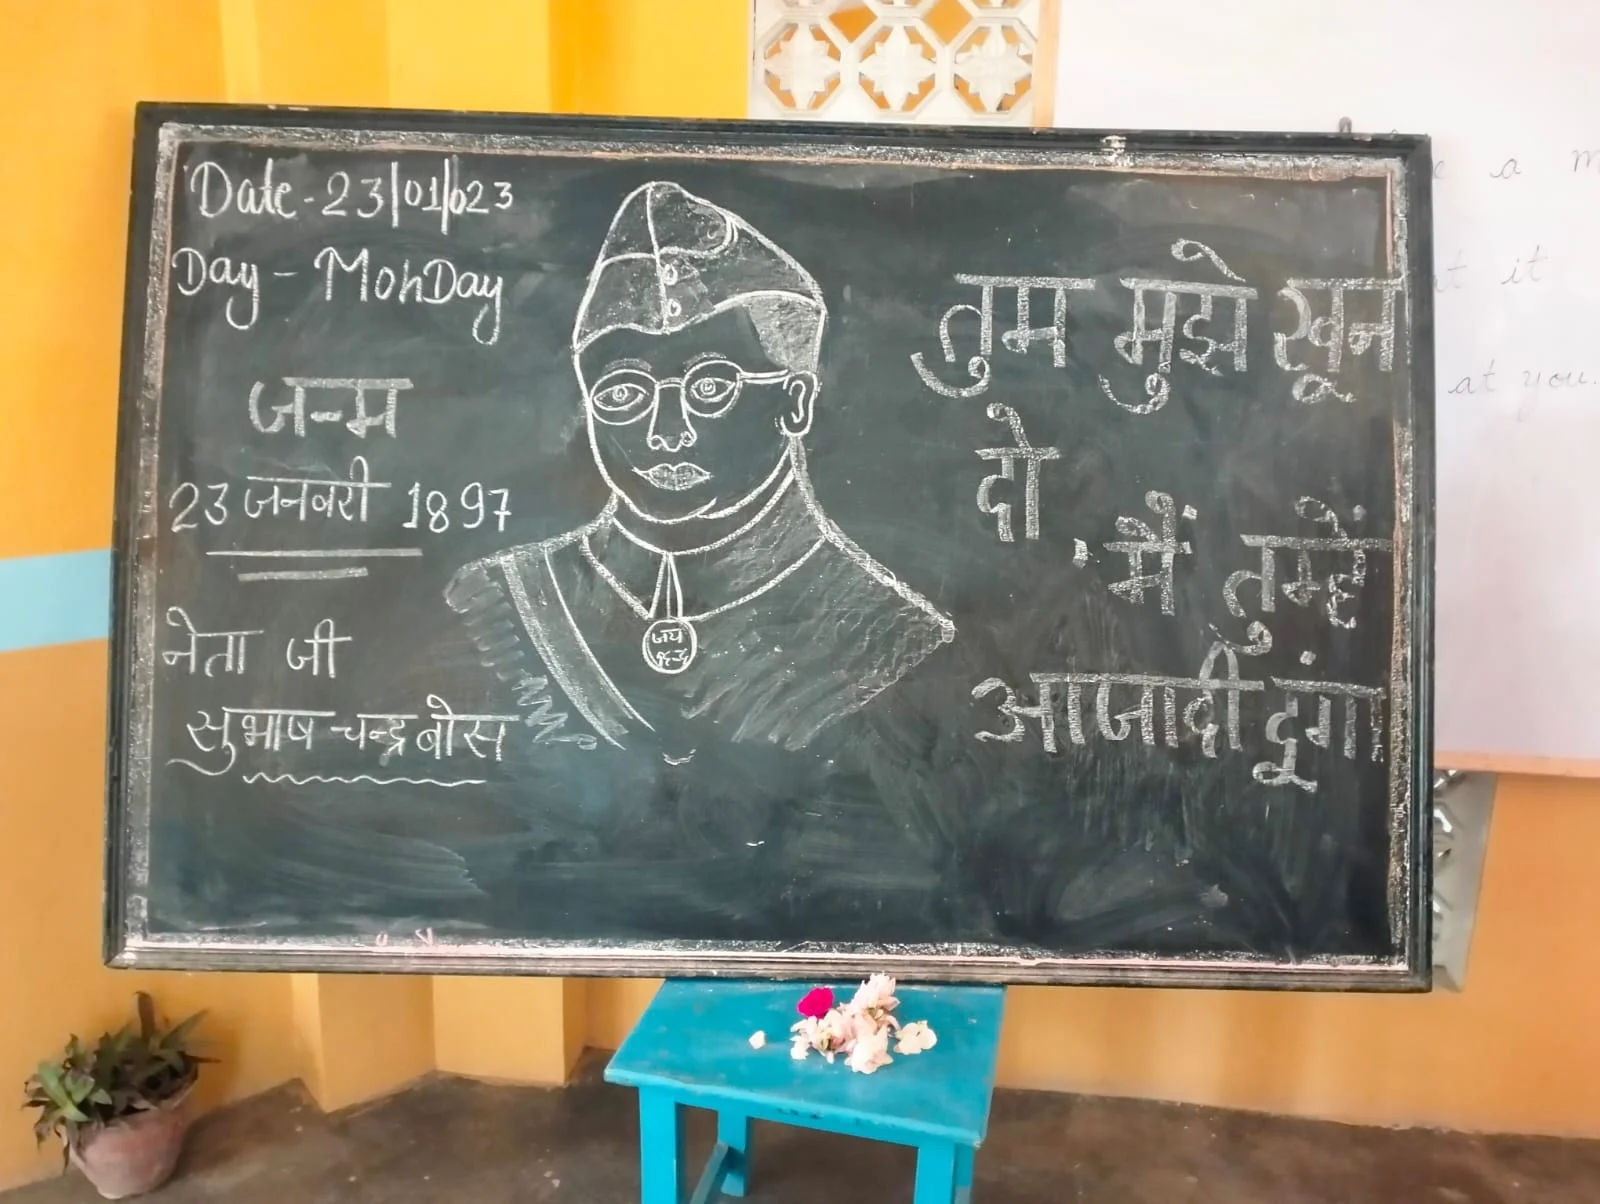 Date-23/01/023
Day - MonDay
जन्म
23 जनवरी 1897
नेता जी
सुभाष चन्द्र बोस
जय
हिन्द
तुम मुझे खून
दो
मैं तुम्हें
आजादी दूंगा
a
it
at you.